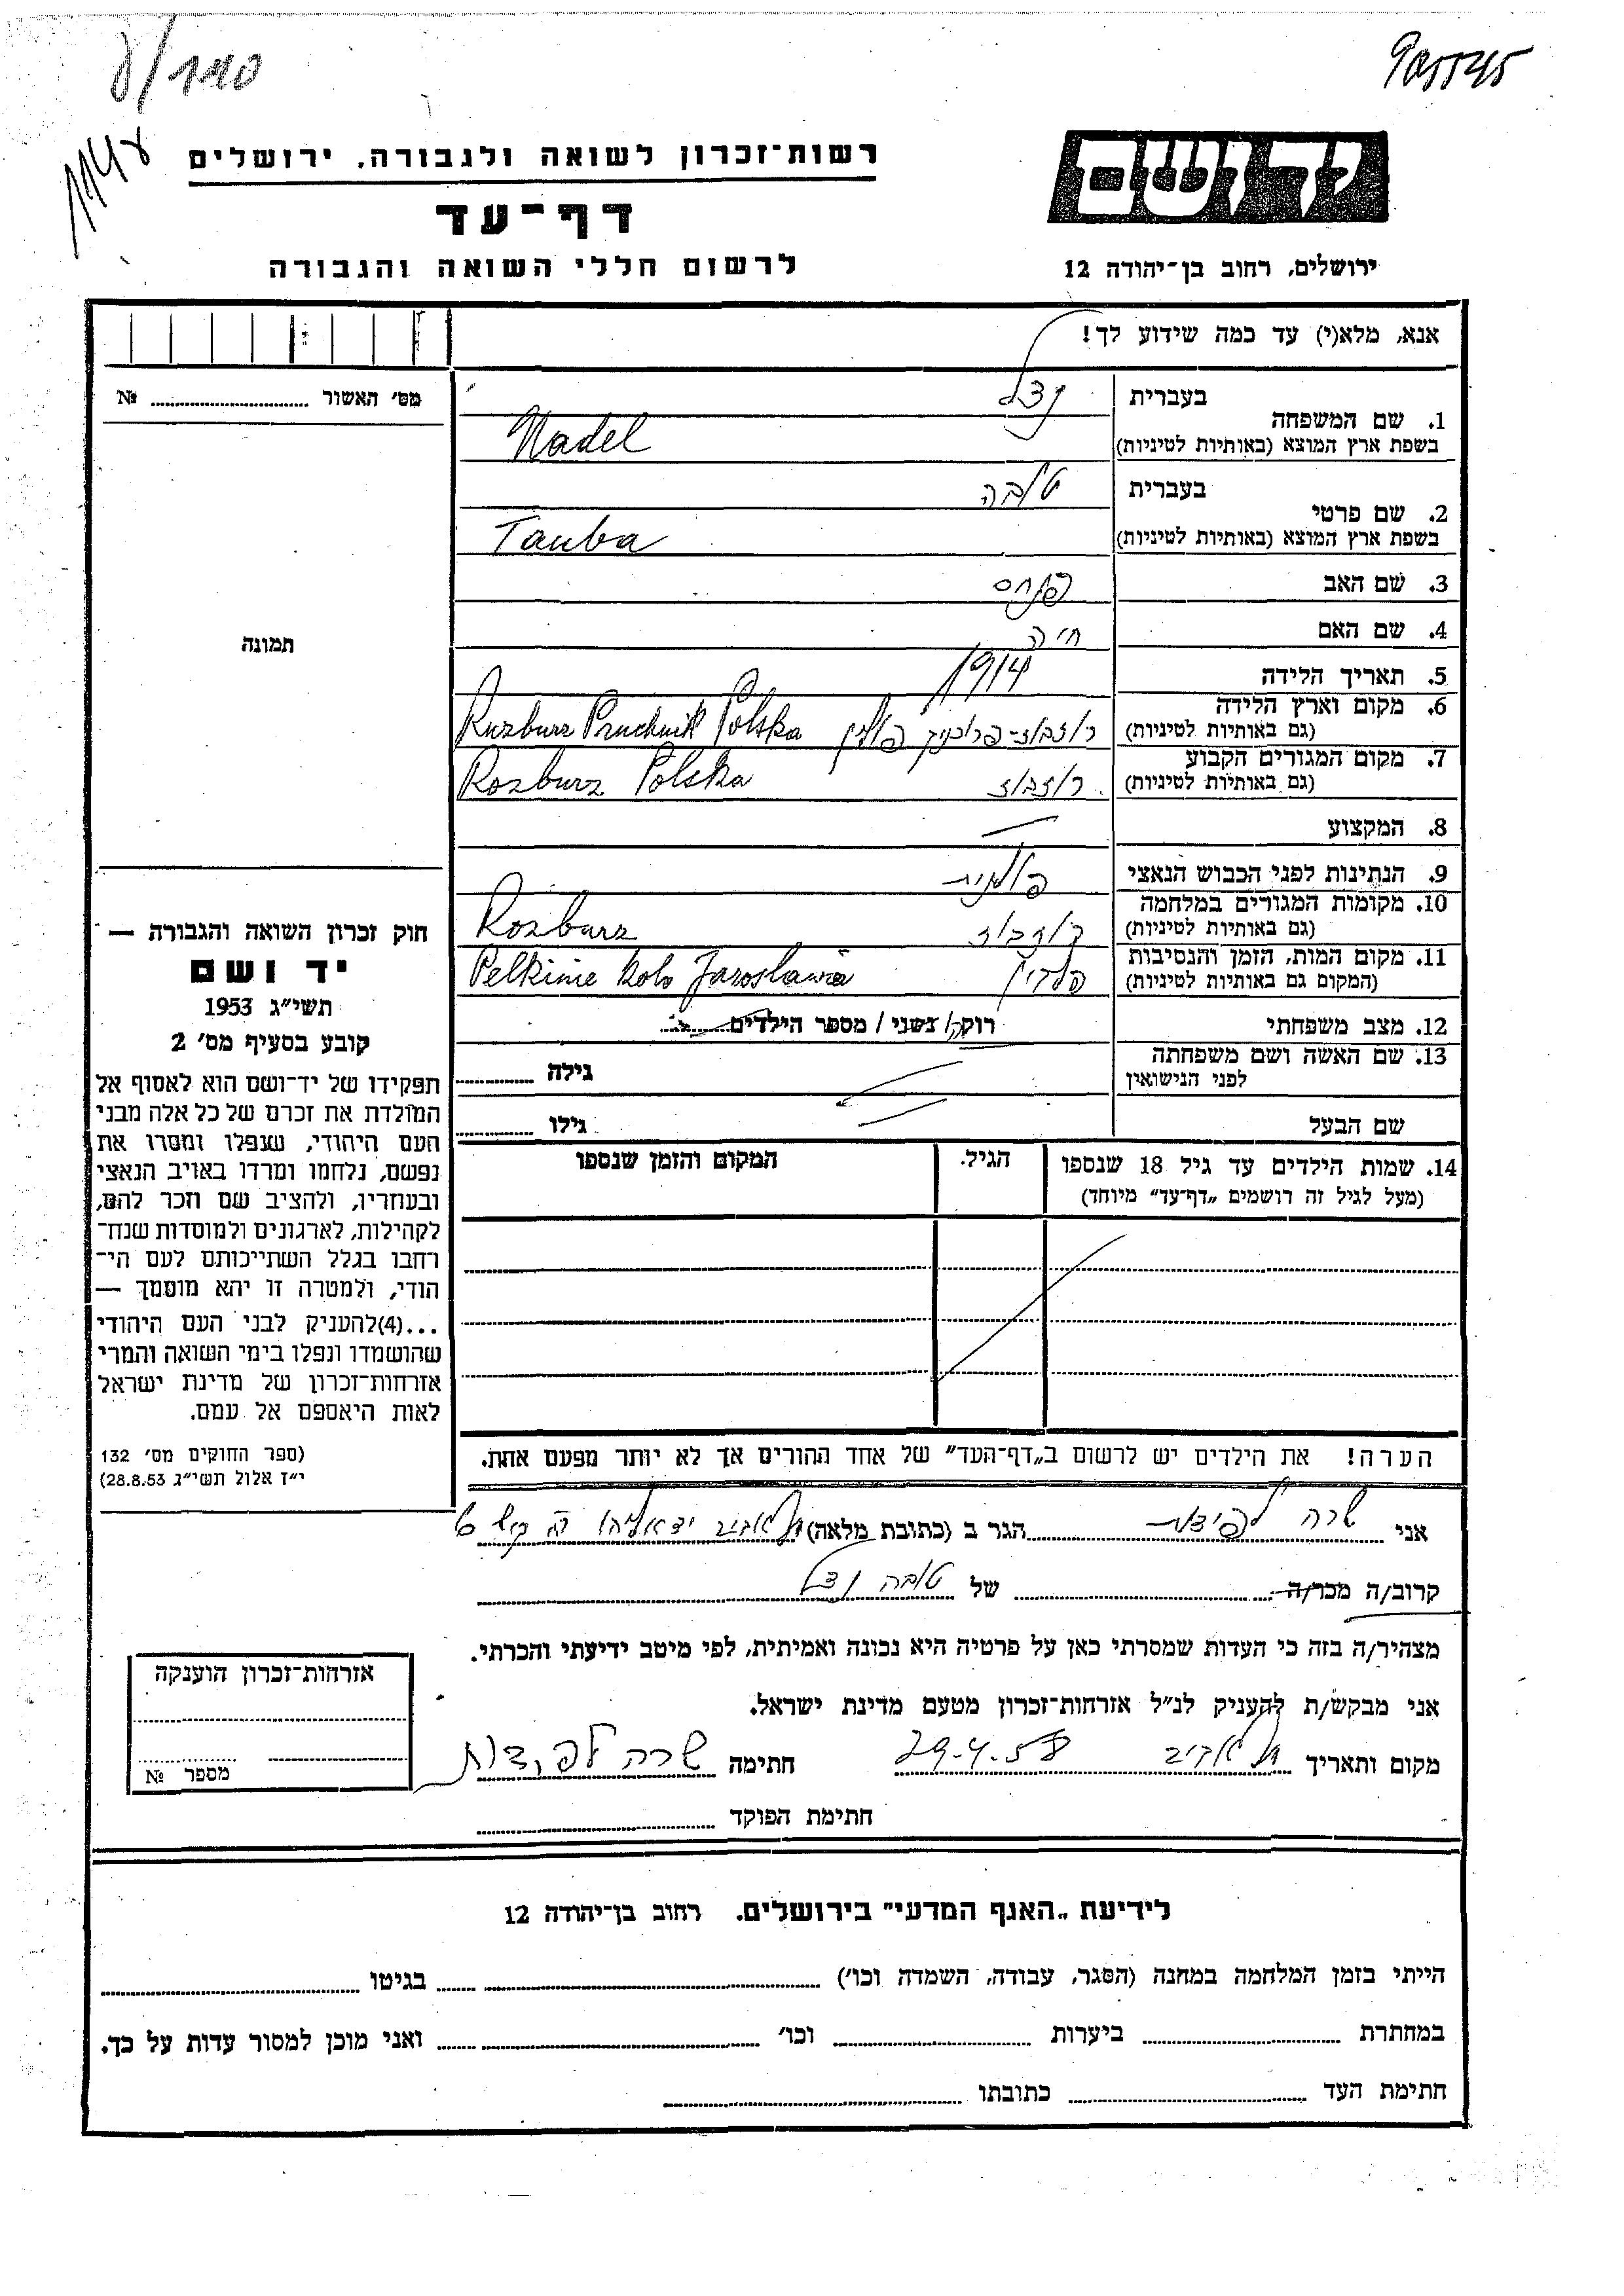 905545
יד ושם
רשות־זכרון לשואה ולגבורה, ירושלים
דף־עד
לרשום חללי השואה והגבורה
ירושלים, רחוב בן־יהודה 12
אנא, מלא(י) עד כמה שידוע לך!
מס׳ האשור № ........
תמונה
1. שם המשפחה
בעברית נדל
בשפת ארץ המוצא (באותיות לטיניות) Nadel
2. שם פרטי
בעברית טובה
בשפת ארץ המוצא (באותיות לטיניות) Tauba
3. שם האב פנחס
4. שם האם חיה
5. תאריך הלידה 1914
6. מקום וארץ הלידה
(גם באותיות לטיניות) רוזבוז-פרוכניק פולין Ruzburz Pruchnik Polska
7. מקום המגורים הקבוע
(גם באותיות לטיניות) רוזבוז Rozburz Polska
8. המקצוע —
9. הנתינות לפני הכבוש הנאצי פולנית
10. מקומות המגורים במלחמה
(גם באותיות לטיניות) רוזבוז Rozburz
11. מקום המות, הזמן והנסיבות
(המקום גם באותיות לטיניות) Pelkinie kolo Jaroslawia
12. מצב משפחתי רוקה/נשוי/מספר הילדים........
13. שם האשה ושם משפחתה
לפני הנישואין גילה ........
שם הבעל גילו ........
14. שמות הילדים עד גיל 18 שנספו
(מעל לגיל זה רושמים „דף־עד״ מיוחד)
הגיל.
המקום והזמן שנספו
הערה! את הילדים יש לרשום ב„דף־העד״ של אחד ההורים אך לא יותר מפעם אחת.
חוק זכרון השואה והגבורה —
יד ושם
תשי״ג 1953
קובע בסעיף מס׳ 2
תפקידו של יד־ושם הוא לאסוף אל
המולדת את זכרם של כל אלה מבני
העם היהודי, שנפלו ומסרו את
נפשם, נלחמו ומרדו באויב הנאצי
ובעוזריו, ולהציב שם וזכר להם,
לקהילות, לארגונים ולמוסדות שנח־
רבו בגלל השתייכותם לעם הי־
הודי, ולמטרה זו יהא מוסמך —
...(4)להעניק לבני העם היהודי
שהושמדו ונפלו בימי השואה והמרי
אזרחות־זכרון של מדינת ישראל
לאות היאספם אל עמם.
(ספר החוקים מס׳ 132
י״ז אלול תשי״ג 28.8.53)
אני שרה לפידות הגר ב (כתובת מלאה) תל אביב
קרוב/ה מכר/ה של טובה נדל
מצהיר/ה בזה כי העדות שמסרתי כאן על פרטיה היא נכונה ואמיתית, לפי מיטב ידיעתי והכרתי.
אני מבקש/ת להעניק לנ״ל אזרחות־זכרון מטעם מדינת ישראל.
מקום ותאריך תל אביב 29.4.58 חתימה שרה לפידות
חתימת הפוקד ........
אזרחות־זכרון הוענקה
מספר №
לידיעת „האגף המדעי״ בירושלים. רחוב בן־יהודה 12
הייתי בזמן המלחמה במחנה (הסגר, עבודה, השמדה וכו׳) ........ בגיטו ........
במחתרת ........ ביערות ........ וכו׳ ........ ואני מוכן למסור עדות על כך.
חתימת העד ........ כתובתו ........